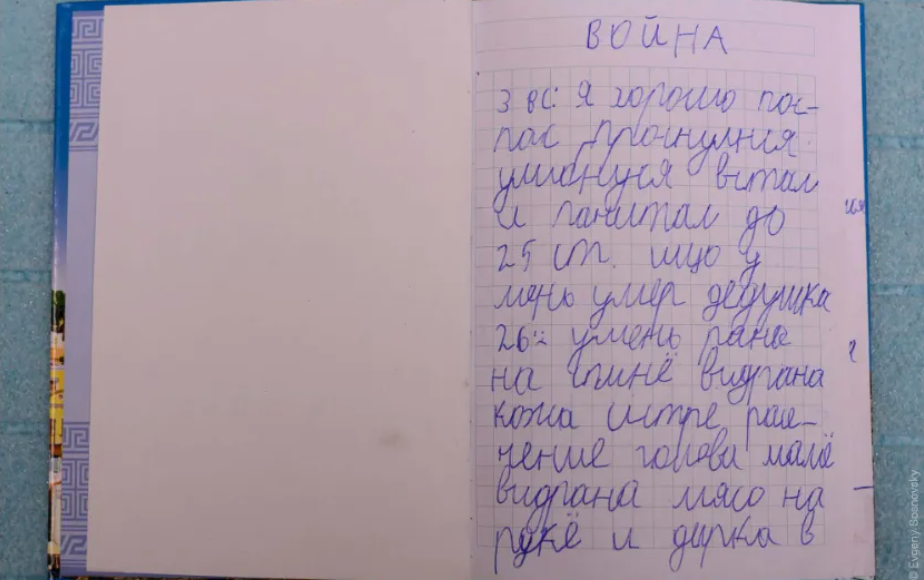 ВОЙНА
3 вс: я хорошо пос-
пас прочнулнся
умионуня встал
и пачитал до
25 ст. ищо у
мень умер дедушка
26:: умень рана
на спинё видрана
кожа истре рас-
чение голова мале
видрана мясо на
рукё и дирка в
© Evgeny Sosnovsky